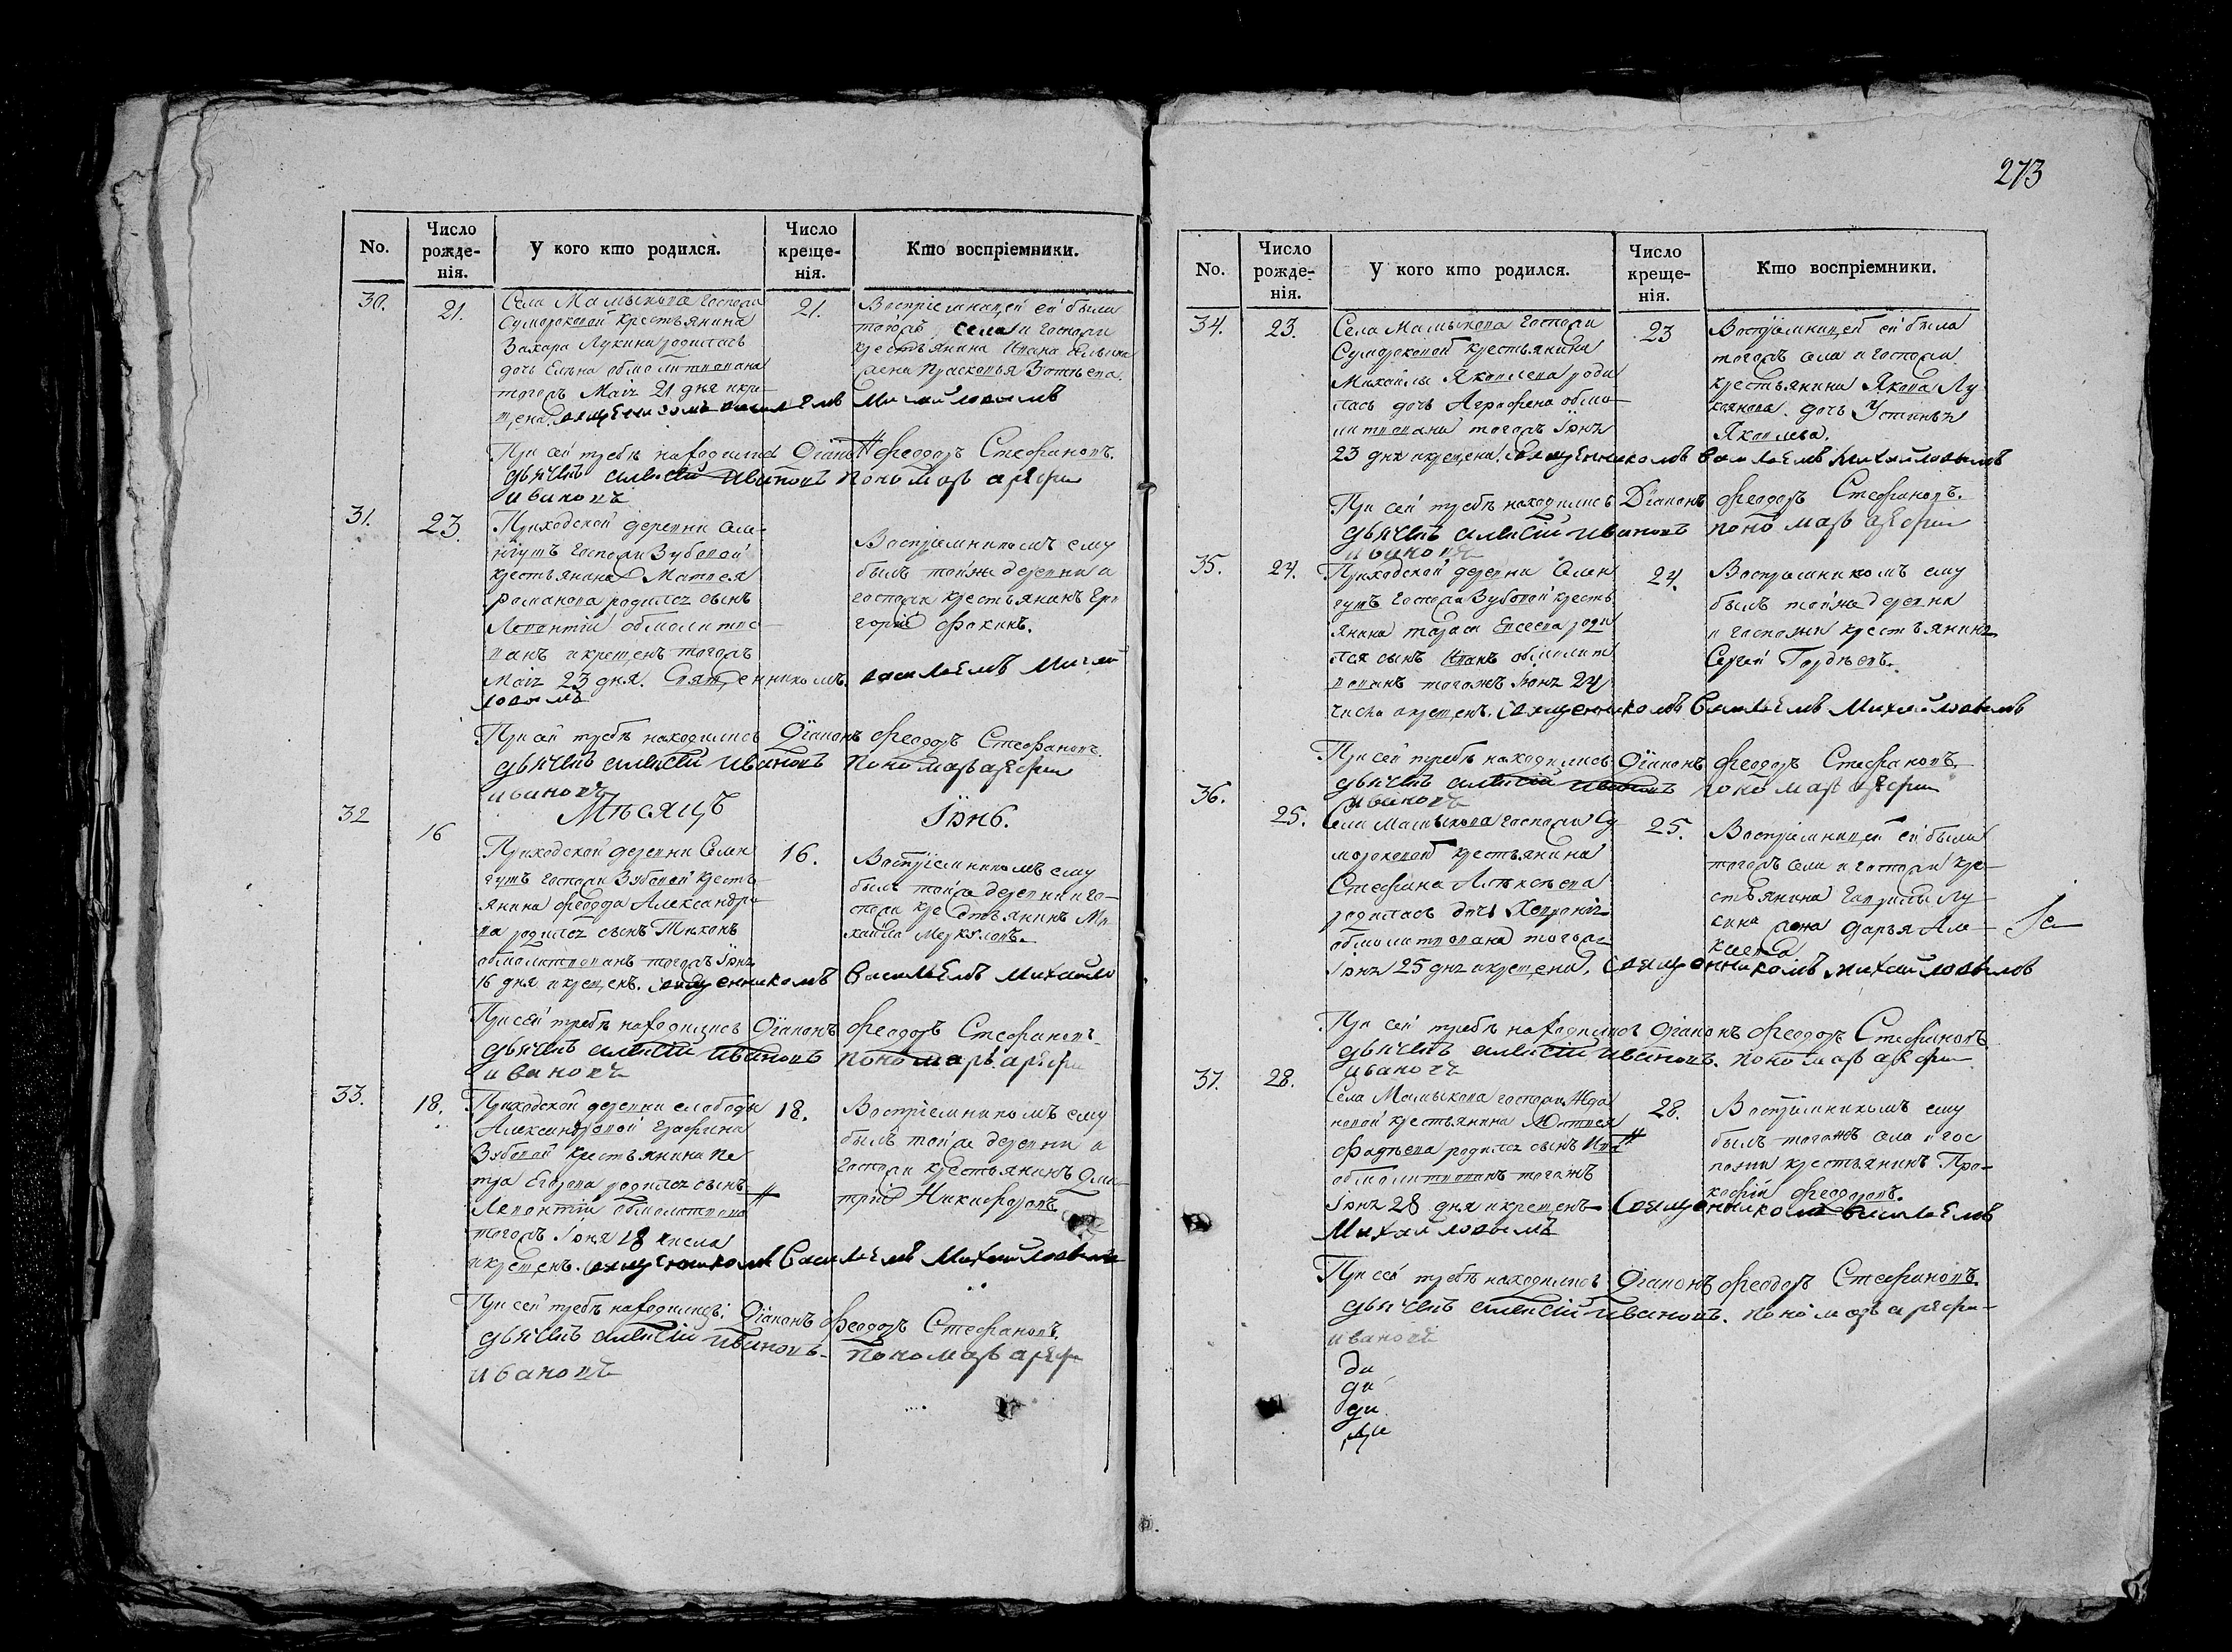 No.
Число рожде-нія.
У кого кто родился.
Число креще-нія.
Кто воспріемники.
30.
21.
Села Мамыкова Госпожи
Сумороковой крестьянина
Захара Лукина родилась
дочь Елена обмолитвована
тогожъ Маія 21 дня и кре-
щена. священникомъ василіемъ Михайловымъ
21.
Воспріемницей ей была
тогожъ села и Госпожи
крестьянина Ивана
жена Прасковья
При сей требѣ находились Діаконъ Феодоръ Стефановъ.
дьячекъ алексій ивановъ пономарь арефи
ивановъ
31.
23.
Приходской деревни Сем-
Госпожи Зубовой
крестьянина Матвея
Романова родился сынъ
Леонтій обмолитво-
ванъ и крещенъ тогожъ
Маія 23 дня. Священникомъ. василіемъ Михай
ловымъ
Воспріемникомъ ему
былъ тойже деревни и
госпожи крестьянинъ Гри
горій Фокинъ.
При сей требѣ находились Діаконъ Феодоръ Стефановъ
дьячекъ алексій ивановъ пономарь арефи
ивановъ
Мѣсяцъ Іюнь.
32
16
Приходской деревни
Госпожи Зубовой кресть-
янина Феодора Александро-
ва родился сынъ Тихонъ
обмолитвованъ тогожъ Іюня
16 дня и крещенъ. священникомъ Василіемъ Михайло
16.
Воспріемникомъ ему
былъ тойже деревни и го-
спожи крестьянинъ Ми
хайла Меркуловъ.
При сей требѣ находились Діаконъ Феодоръ Стефановъ
дьячекъ алексій ивановъ пономарь арефи
ивановъ
33.
18.
Приходской деревни слободы
Александровой Графина
Зубовой крестьянина Пе
тра Егорова родился сынъ
Леонтій обмолитвова
тогожъ Іюня 18 числа
и крещенъ. священникомъ Василіемъ Михайловымъ
18.
Воспріемникомъ ему
былъ тойже деревни и
Госпожи крестьянинъ Дми-
трій Никифоровъ
При сей требѣ находились: Діаконъ Феодоръ Стефановъ.
дьячекъ алексій ивановъ- пономарь арефи
ивановъ
273
No.
Число рожде-нія.
У кого кто родился.
Число креще-нія.
Кто воспріемники.
34.
23.
Села Мамыкова Госпожи
Сумороковой крестьянина
Михайлы Яковлева роди
лась дочь Агрифена обмо-
литвована тогожъ Іюня
23 дня и крещена. священникомъ василіемъ Михайловымъ
23
Воспріемницей ей была
тогожъ села и госпожи
крестьянина Якова Лу
кянова. дочь Устинья
Яковлева.
При сей требѣ находились Діаконъ Феодоръ Стефановъ.
дьячекъ алексій ивановъ пономарь арефи
ивановъ
35.
24.
Приходской деревни
Госпожи Зубовой кресть
янина Тараса Евсеева роди
лся сынъ Иванъ обмолит
вованъ тогожъ Іюня 24
числа и крещенъ. священникомъ Василіемъ Михайловымъ
24.
Воспріемникомъ ему
былъ тойже деревни
и госпожи крестьянинъ
Сергей Гордѣевъ.
При сей требѣ находились Діаконъ Феодоръ Стефановъ
дьячекъ алексій ивановъ пономарь арефи
ивановъ
36.
25.
Села Мамыкова госпожи Су
мороковой крестьянина
Стефана Алексѣева
родилась дочь
обмолитвована тогожъ
Іюня 25 дня и крещена. священникомъ михайловымъ
25.
Воспріемницей ей была
тогожъ села и госпожи кре-
стьянина Гаврилы Лу
кина жена Дарья Але-
ксеева
При сей требѣ находились Діаконъ Феодоръ Стефановъ
дьячекъ алексій ивановъ. пономарь арефи
ивановъ
37.
28.
Села Мамыкова госпожи Жда
новой крестьянина Матвея
Фадѣева родился сынъ
обмолитвованъ тогожъ
Іюня 28 дня и крещенъ Священникомъ василіемъ
Михайловымъ
28.
Воспріемникомъ ему
былъ тогожъ села и гос
пожи крестьянинъ Про-
кофій Феодоровъ.
При сей требѣ находились Діаконъ Феодоръ Стефановъ
дьячекъ алексій ивановъ. пономарь арефи-
ивановъ
ди
ди
ди